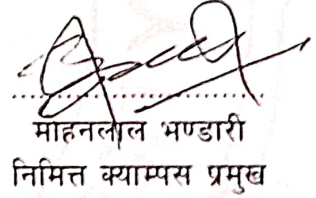 मोहनलाल भण्डारी
निमित्त क्याम्पस प्रमुख